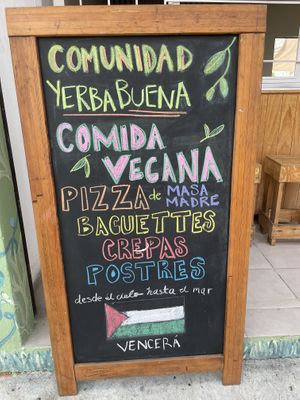 COMUNIDAD
YERBABUENA
COMIDA
VEGANA
PIZZA de MASA MADRE
BAGUETTES
CREPAS
POSTRES
desde el cielo hasta el mar
VENCERA